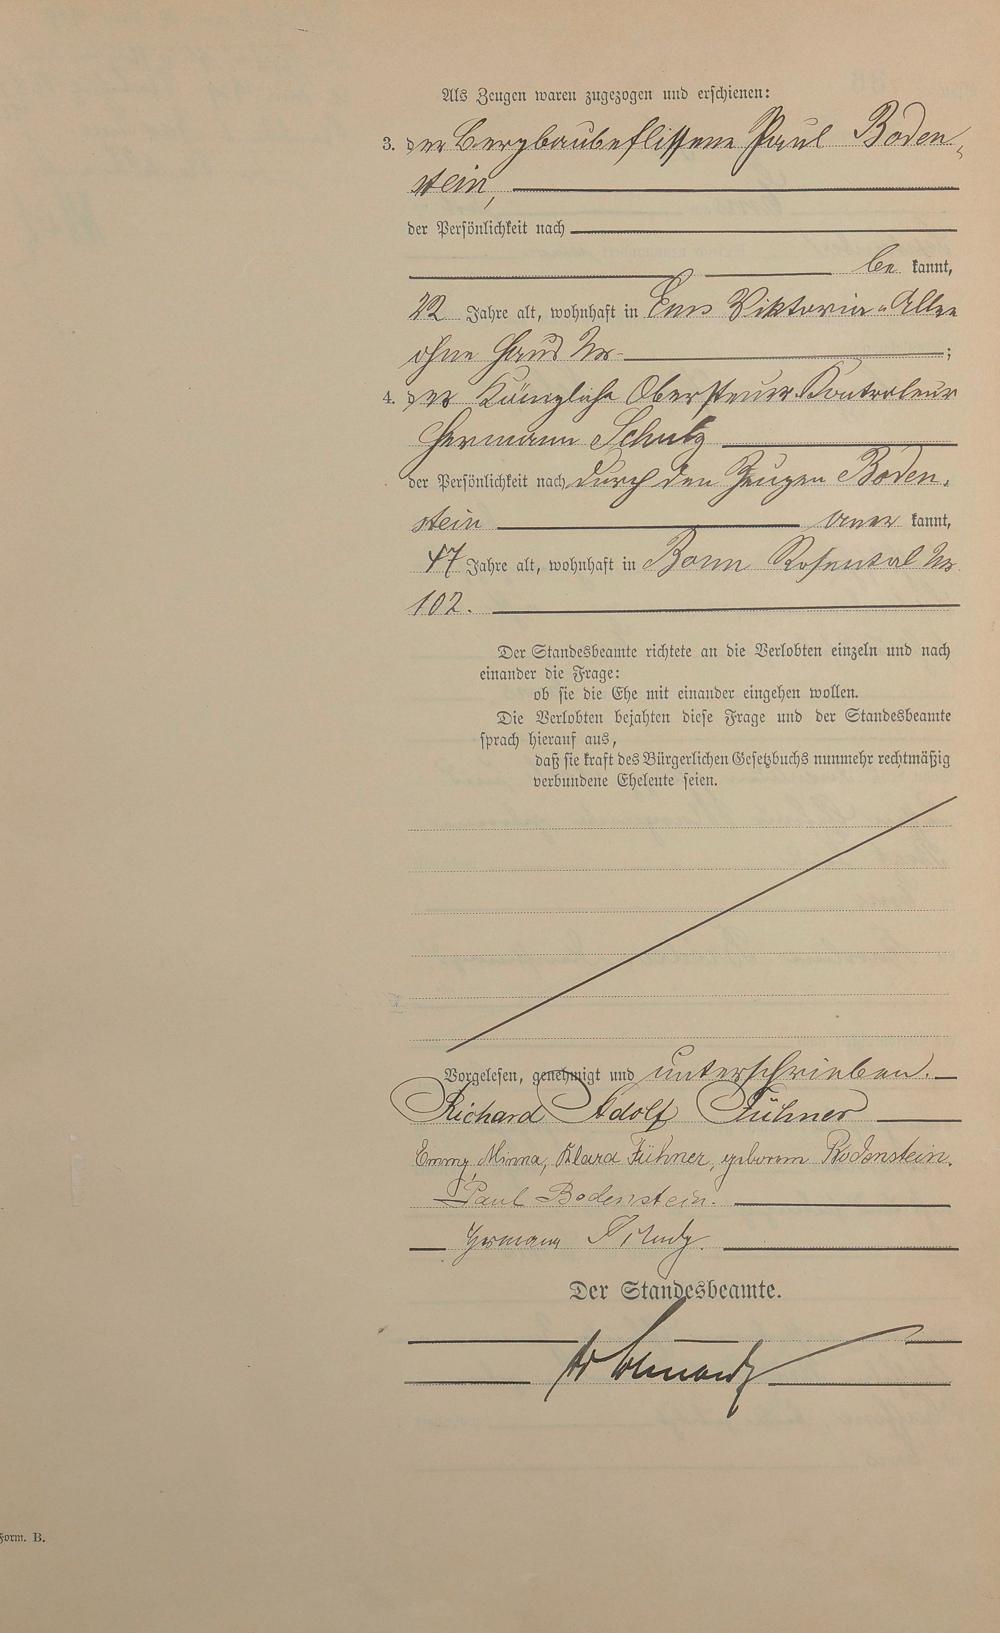 Als Zeugen waren zugezogen und erschienen:
3. der Bergbaubeflissene Paul Boden-
stein,
der Persönlichkeit nach
be kannt,
22 Jahre alt, wohnhaft in Ems Viktoria-Allee
ohne Haus Nr.
;
4. der Königliche Obersteuer-Kontroleur
Hermann Schulz
der Persönlichkeit nach durch den Zeugen Boden-
stein aner kannt,
47 Jahre alt, wohnhaft in Bonn Rosental Nr
102.
Der Standesbeamte richtete an die Verlobten einzeln und nach
einander die Frage:
ob sie die Ehe mit einander eingehen wollen.
Die Verlobten bejahten diese Frage und der Standesbeamte
sprach hierauf aus,
daß sie kraft des Bürgerlichen Gesetzbuchs nunmehr rechtmäßig
verbundene Eheleute seien.
Vorgelesen, genehmigt und unterschrieben.
Richard Adolf Fühner
Emmy, Minna, Klara Fühner, geborene Bodenstein.
Paul Bodenstein.
Hermann Schulz.
Der Standesbeamte.
Form. B.